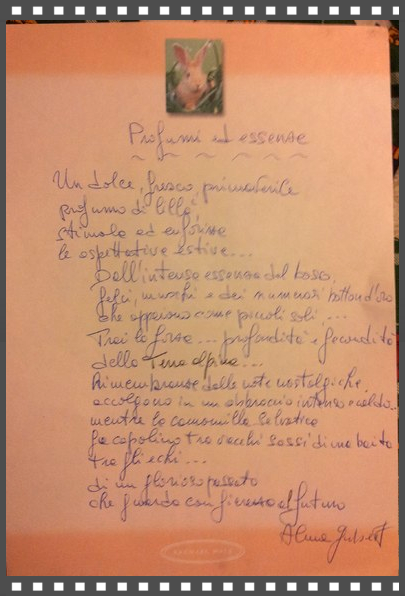 Profumi ed essenze
Un dolce, fresco, primaverile
profumo di lillà,
stimola ed euforizza
le aspettative estive...
Dall'intensa essenza del bosco,
felci, muschi e dei numerosi bottoni d'oro
che appaiono come piccoli soli...
Trai la forza... profondità e fecondità
della Terra alpina...
Rimembranze dalle note nostalgiche
accolgono in un abbraccio intenso e caldo...
mentre la camomilla selvatica
fa capolino tra vecchi sassi di una baita
tra gli echi...
di un glorioso passato
che guarda con fierezza al futuro
Alma